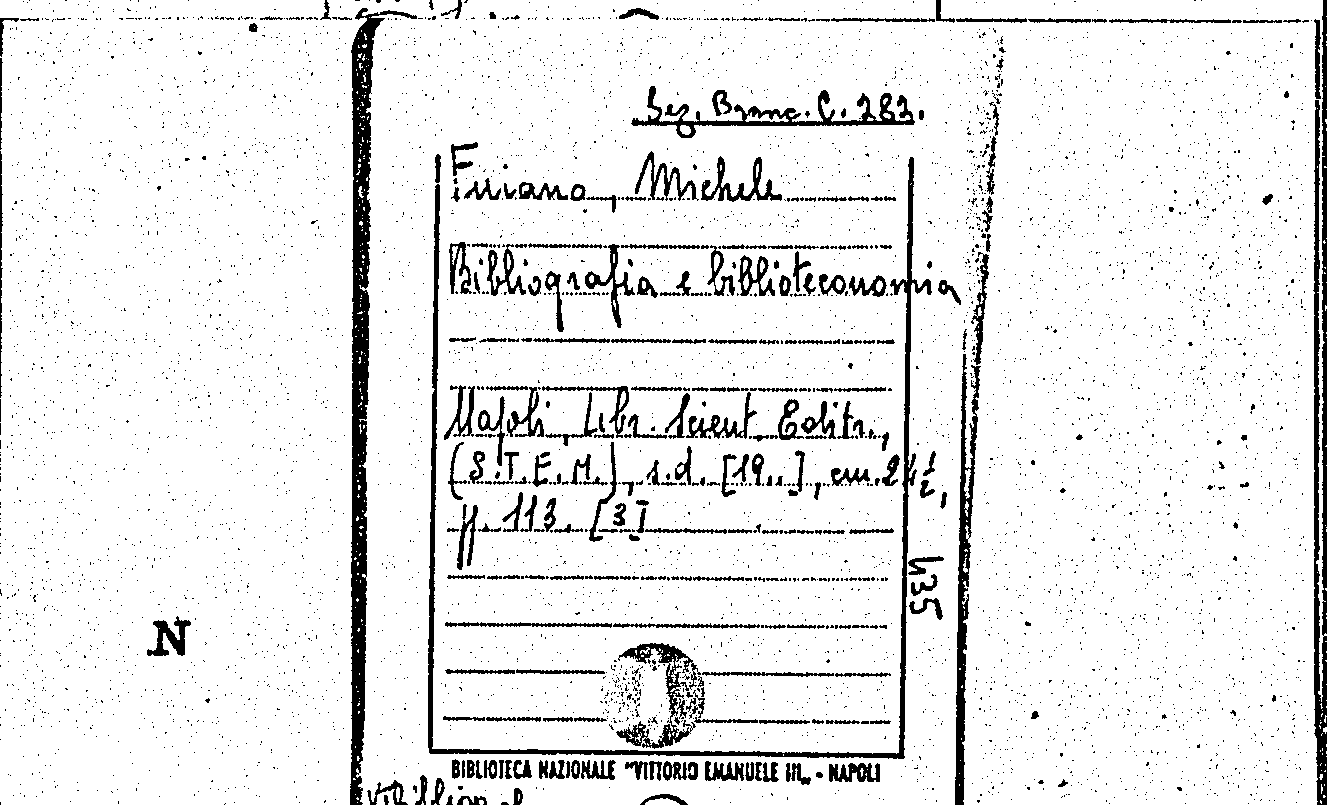 Sez. Branc. C. 282.
Fuiano, Michele
Bibliografia e biblioteconomia
Napoli, Libr. Scient. Editr.,
(S.T.E.M.), s.d. [19..], cm. 24 1/2,
pp. 113. [3]
435
N
BIBLIOTECA NAZIONALE "VITTORIO EMANUELE III„ - NAPOLI